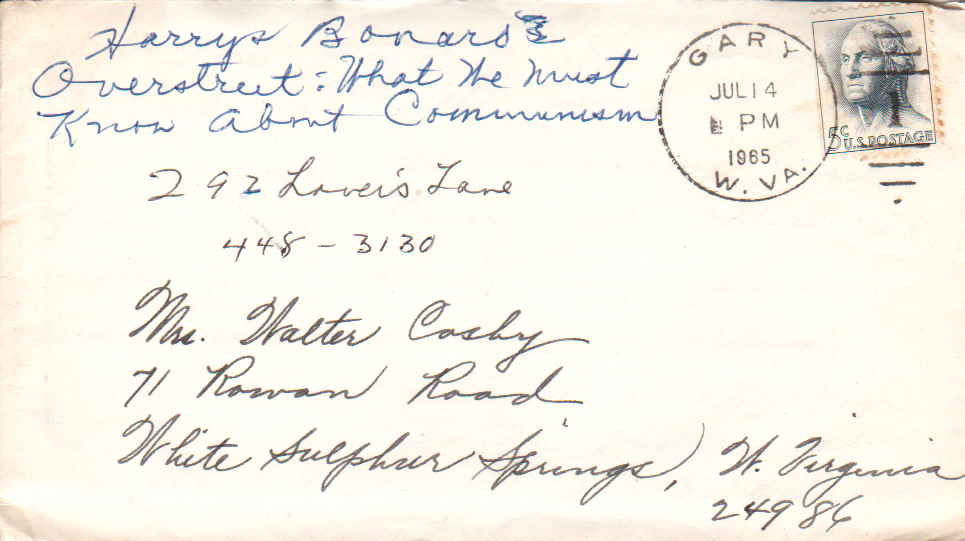 Harry & Bonaro
Overstreet: What We Must
Know About Communism
292 Lover's Lane
448-3130
Mr. Walter Cosby
71 Rowan Road
White Sulphur Springs, W. Virginia
24986
GARY
JUL 14
PM
1965
W. VA.
5c
U.S. POSTAGE